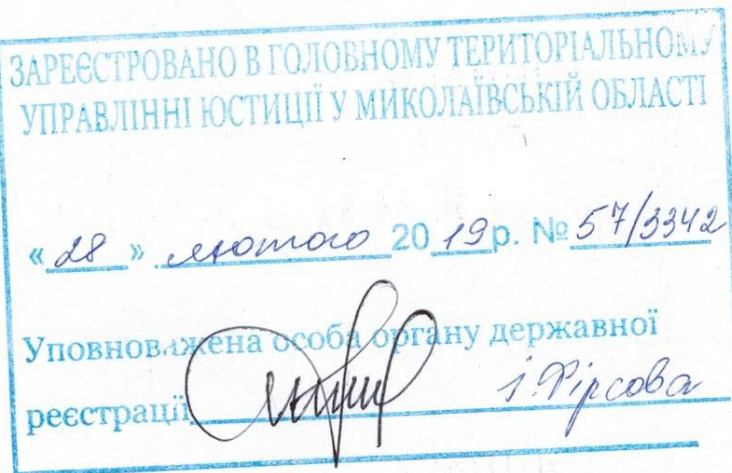 ЗАРЕЄСТРОВАНО В ГОЛОВНОМУ ТЕРИТОРІАЛЬНОМУ
УПРАВЛІННІ ЮСТИЦІЇ У МИКОЛАЇВСЬКІЙ ОБЛАСТІ
«28» лютого 2019р. № 57/3342
Уповноважена особа органу державної
реєстрації І.Фірсова